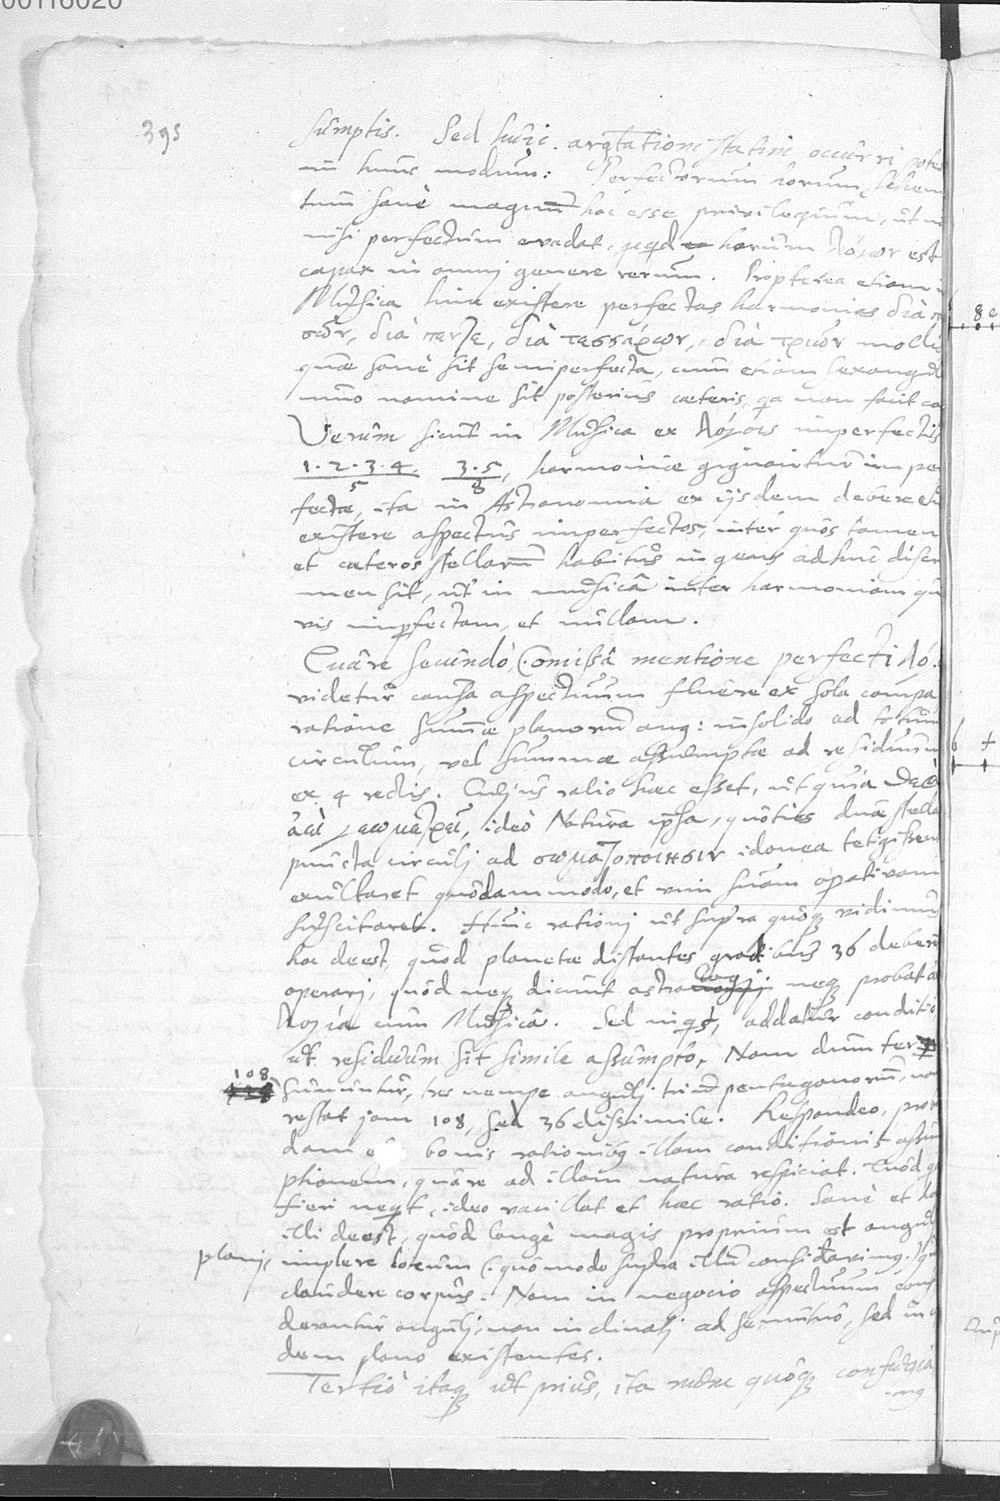 00116020
395
sumptis. Sed huic argtatione statim occurri potest
in hunc modum: Perfectorum horum
tum sanè magnum hoc esse privilegium, ut n
nisi perfectum evadat, qcqd horum λόγων est
capax in omnj genere rerum. Propterea etiam in
Musica hinc existere perfectas harmonias διὰ π
σῶν, διὰ πέντε, διὰ τεσσάρων, διὰ τριῶν mollis
quæ sanè sit semiperfecta, cum etiam sexangul
nomine sit posterius cæteris, qa non facit
Verùm sicut in Musica ex λόγοις imperfectis
1. 2. 3. 4. 3. 5, harmoniæ gignantur impe
5 8
fectæ, ita in Astronomia ex ijsdem debere
existere aspectus imperfectos, inter quos tamen
et cæteros stellarum habitus ingens adhuc discri
men sit, ut in musicâ inter harmoniam qu
vis impfectam, et nullam.
Quare secundò, (omissâ mentione perfecti λό.
videtur causa aspectuum fluere ex sola compa
ratione summæ planorum ang: in solido ad totum
circulum, vel summæ assumptæ ad residuum
ex 4 rectis. Cujus ratio hæc esset, ut quia Deus
ἀεὶ γεωμετρεῖ, ideò Natura ipsa, quoties duæ stellæ
puncta circulj ad σωματοποίησιν idonea tetigissent
exultaret quodammodo, et vim suam opativam
suscitaret. Huic rationj ut supra quoq vidimus
hoc deest, quòd planetæ distantes gradibus 36 deberent
operarj, quod neq dicunt astrologj neq probat
λογία cum Musicâ. Sed inqs, addatur conditio
ut residuum sit simile assumpto, Nam dum
108
sumuntur, tres nempe angulj pentagonorum, non
restat jam 108, sed 36 dissimile. Respondeo,
dam bonis rationibq illam conditionis assum
ptionem, quare ad illam natura respiciat. Quod
fieri neqt, ideo vacillat et hæc ratio. Sanè et hoc
illi deest, quòd longè magis proprium est angulj
planj, implere locum (quomodo supra illum considavimq.) q
claudere corpus. Nam in negocio aspectuum cons
derantur angulj, non inclinatj ad se mutuò, sed in
dem plano existentes.
Tertiò itaq ut prius, ita nunc quoq
imq
8
6 +